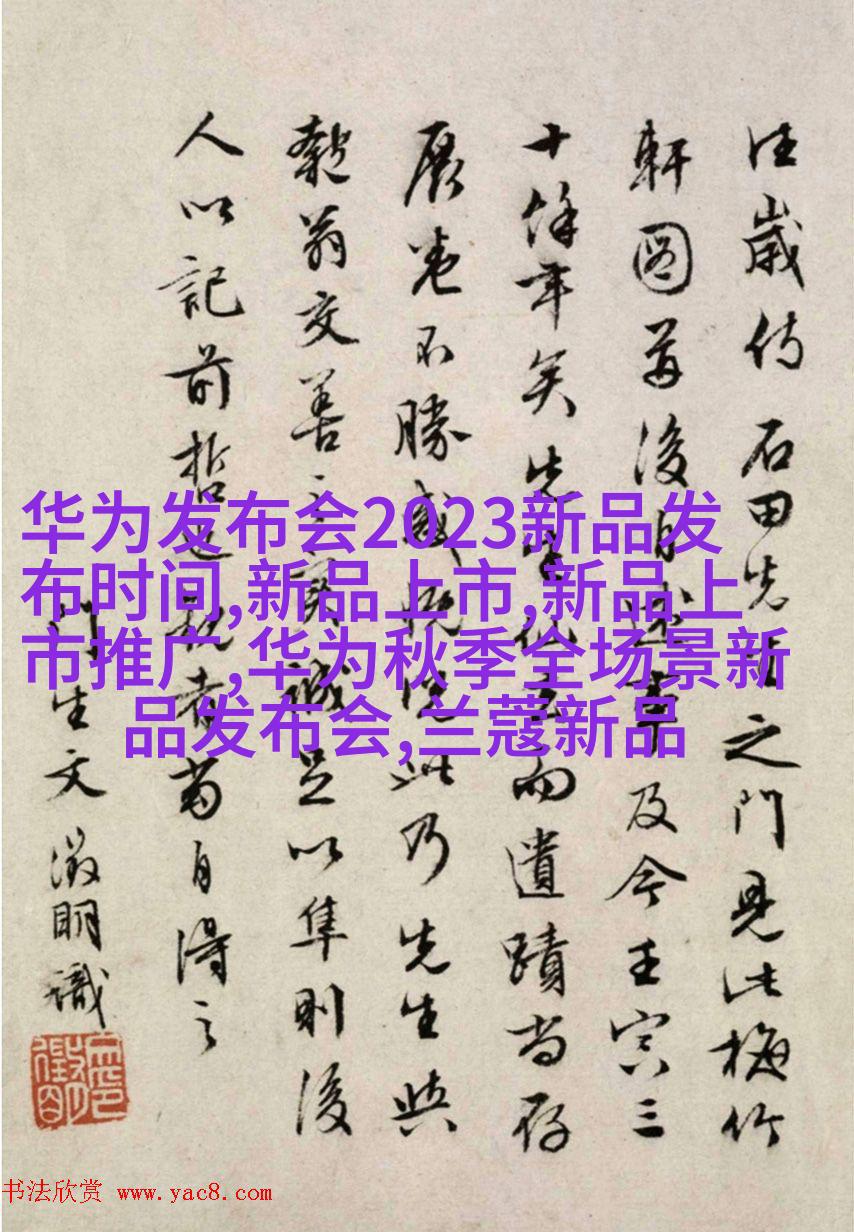 往歲侍石田先生之門見此梅竹
軒圖草後自及今壬寅三
十餘年矣先生而遺蹟尚存
展卷不勝感此乃先生與
翁交善之言誠足以準則後
人以記前哲者當自得之
門生文徵明識
华为发布会2023新品发
布时间,新品上市,新品上
市推广,华为秋季全场景新
品发布会,兰蔻新品
书法欣赏 www.yac8.com